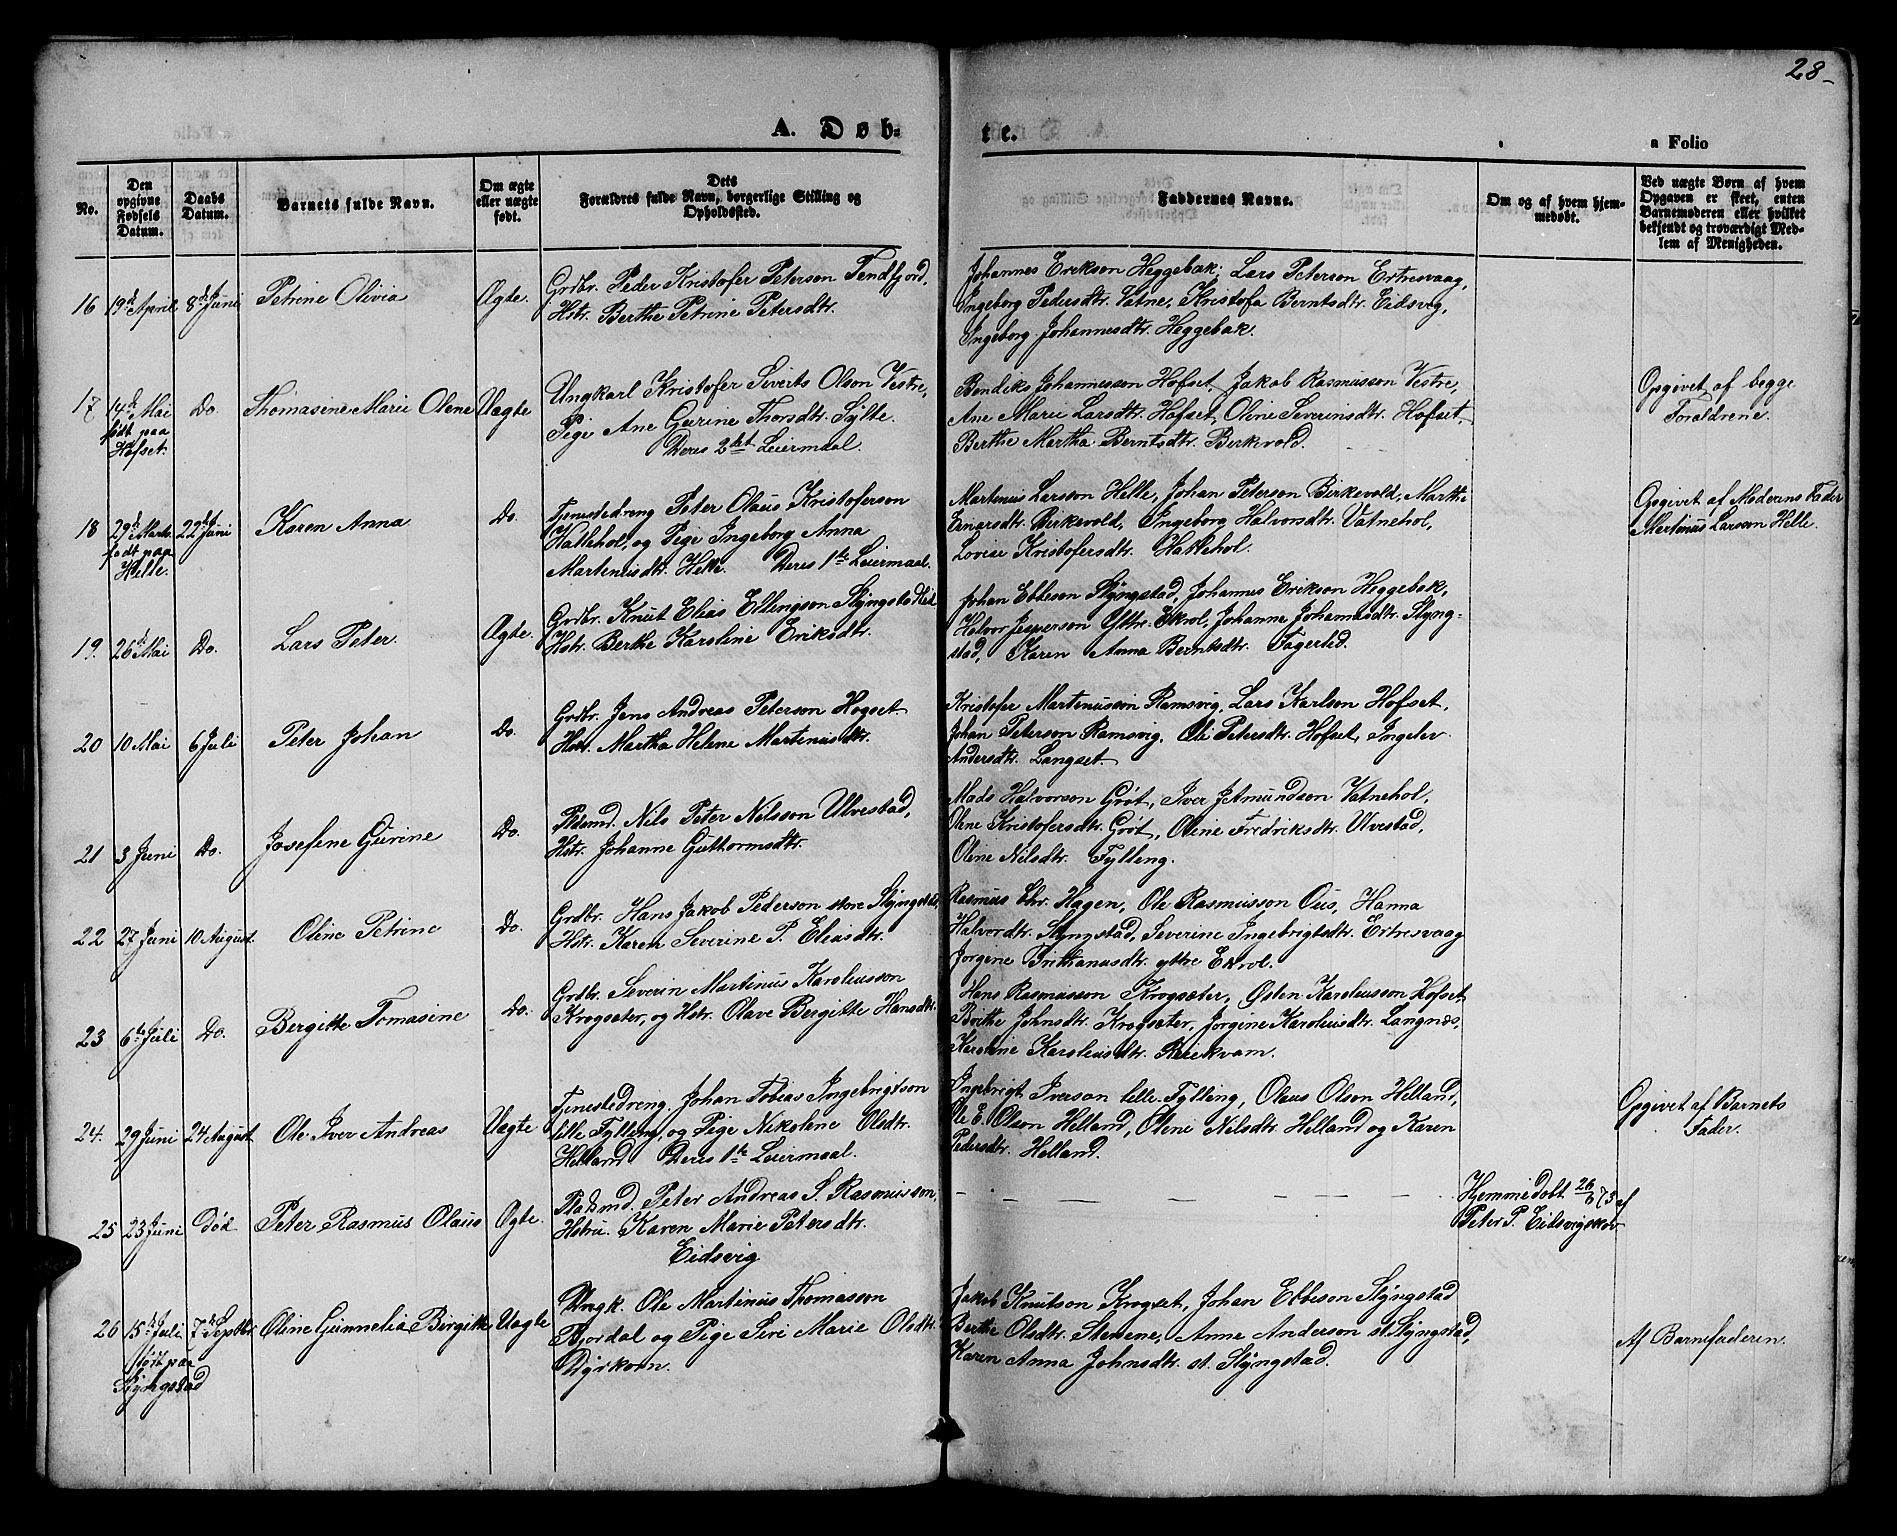 28
A. Døb-
te.
a Folio
No.
Den opgivne Fødsels Datum.
Daabs Datum.
Barnets fulde Navn.
Om ægte eller uægte født.
Dets
Forældres fulde Navn, borgerlige Stilling og
Opholdssted.
Faddernes Navne.
Om og af hvem hjem-
medøbt.
Ved uægte Børn af hvem
Opgaven er skeet, enten
Barnemoderen eller hvilket
bekjendt og troværdigt Med-
lem af Menigheden.
16 19de April 8de Juni Petrine Olivia Ægte.
Grdbr. Peder Kristofer Peterson Tendfjord,
Hstr. Berthe Petrine Petersdtr.
Johannes Erikson Heggebak, Lars Peterson Ertresvaag,
Ingeborg Pedersdtr. Vatne, Kristofa Berntsdtr. Eidsvig,
Ingeborg Johannesdtr. Heggebak.
17 14de Mai Do. Thomasine Marie Olene Uægte
født paa
Hofset.
Ungkarl Kristofer Siverts Olson Vestre,
Pige Ane Gurine Thorsdtr. Sylte.
Deres 2det Leiermaal.
Bendik Johannesson Hofset, Jakob Rasmusson Vestre,
Ane Marie Larsdtr. Hofset, Oline Severinsdtr. Hofset,
Berthe Martha Berntsdtr. Birkvold.
Opgivet af begge
Forældrene.
18 29de Marts 22det Juni Karen Anna Do.
født paa
Helle.
Tjenestedreng Peter Olaus Kristoferson
Hattehol, og Pige Ingeborg Anna
Martinusdtr. Helle. Deres 1ste Leiermaal.
Martinus Larsson Helle, Johan Peterson Birkevold, Marthe
Einarsdtr. Birkevold, Ingeborg Halvorsdtr. Vatnehol,
Lovise Kristofersdtr. Hattehol.
Opgivet af Moderens Fader
Martinus Larson Helle.
19. 26de Mai Do. Lars Peter Ægte.
Grdbr. Knut Elias Ellingson Slyngstadlid
Hstr. Berthe Karoline Eriksdtr.
Johan Ebbeson Slyngstad, Johannes Erikson Heggebak,
Halvor Jesperson Yttre-Ekrol, Johanne Johannesdtr. Slyng-
stad, Karen Anna Berntsdtr. Fagerlid.
20 10 Mai 6 Juli Peter Johan Do.
Grdbr. Jens Andreas Peterson Hogset
Hstr. Martha Helene Martinusdtr.
Kristofer Martinusson Ramsvig, Lars Karlson Hofset,
Johan Peterson Ramsvig, Ole Petersdtr. Hofset, Ingelev
Andersdtr. Langset.
21 3 Juni Do. Josefine Gurine Do.
Pladsmd. Nils Peter Nilsson Ulvestad,
Hstr. Johanne Guttormsdtr.
Mads Halvorson Grøt, Iver Jetmundson Vatnehol,
Oline Kristofersdtr. Grøt, Oline Fredriksdtr. Ulvestad,
Oline Nilsdtr. Fylling.
22 27 Juni 10 August Oline Petrine Do.
Grdbr. Hans Jakob Pederson store Slyngstad,
Hstr. Karen Severine P. Eliasdtr.
Rasmus Chr. Hagen, Ole Rasmusson Ous, Hanna
Halvordtr. Slyngstad, Severine Ingebrigtsdtr. Ertresvaag
Jorgine Trithanusdtr. yttre Ekrol.
23 6te Juli Do. Bergitte Tomasine Do.
Grdbr. Severin Martinus Karolusson
Krogsæter, og Hstr. Olave Bergitte Hansdtr.
Hans Rasmusson Krogsæter, Østen Karolusson Hofset
Brithe Johnsdtr. Krogsæter, Jorgine Karolusdtr. Langnæs,
Karoline Karolusdtr. Reiekvam.
24. 29 Juni 24 August Ole Iver Andreas Uægte
Tjenestedreng Johan Tobias Ingebrigtson
lille Fylling, og Pige Nikoline Olsdtr.
Helland Deres 1ste Leiermaal.
Ingebrigt Iverson lille-Fylling, Olaus Olson Helland,
Ole E. Olson Helland, Oline Nilsdtr Helland og Karen
Pedersdtr. Helland.
Opgivet af Barnets
Fader.
25 23 Juni død Peter Rasmus Olaus Ægte.
Pladsmd. Peter Andreas S. Rasmusson,
Hstru. Karen Marie Petersdtr.
Eidsvig
Hjemmedøbt 26/6 73 af
Peter P. Eidsvigskor
26 15de Juli 7de Septbr. Oline Gunnelia Bergitte Uægte
født paa
Slyngstad
Ungk. Ole Martinus Thomasson
Bjordal og Pige Siri Marie Olsdtr.
Dyrkorn.
Jakob Knutson Krogset, Johan Ebbeson Slyngstad
Berthe Olsdtr. Stensene, Anne Anderson st. Slyngstad,
Karen Anna Johnsdtr. st. Slyngstad.
Af Barnefaderen.